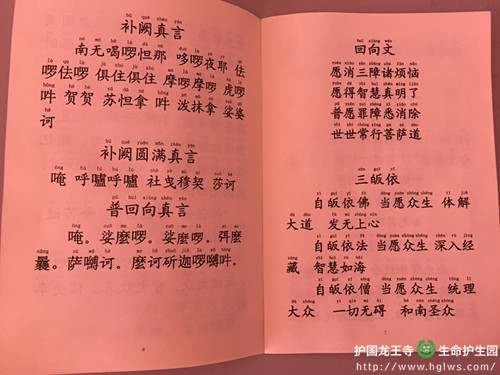 补阙真言
南无喝啰怛那 哆啰夜耶 佉
啰佉啰 俱住俱住 摩啰摩啰 虎啰
吽 贺贺 苏怛拿 吽 泼抹拿 娑婆
诃
补阙圆满真言
唵 呼嚧呼嚧 社曳穆契 莎诃
普回向真言
唵。娑麼啰。娑麼啰。弭麼
曩。萨嚩诃。麼诃斫迦啰嚩吽。
6
回向文
愿消三障诸烦恼
愿得智慧真明了
普愿罪障悉消除
世世常行菩萨道
三皈依
自皈依佛 当愿众生 体解
大道 发无上心
自皈依法 当愿众生 深入经
藏 智慧如海
自皈依僧 当愿众生 统理
大众 一切无碍 和南圣众
7
护国龙王寺 生命护生园
http://www.hglws.com